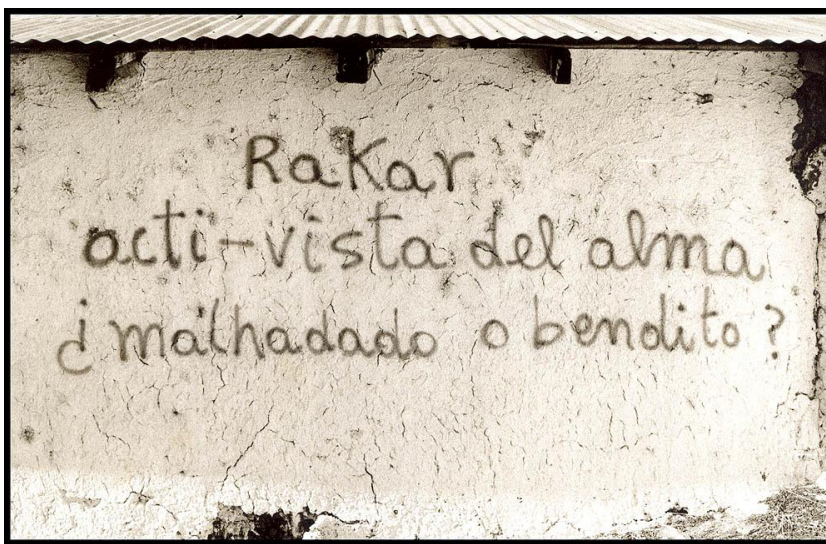 Rakar
acti-vista del alma
¿malhadado o bendito?